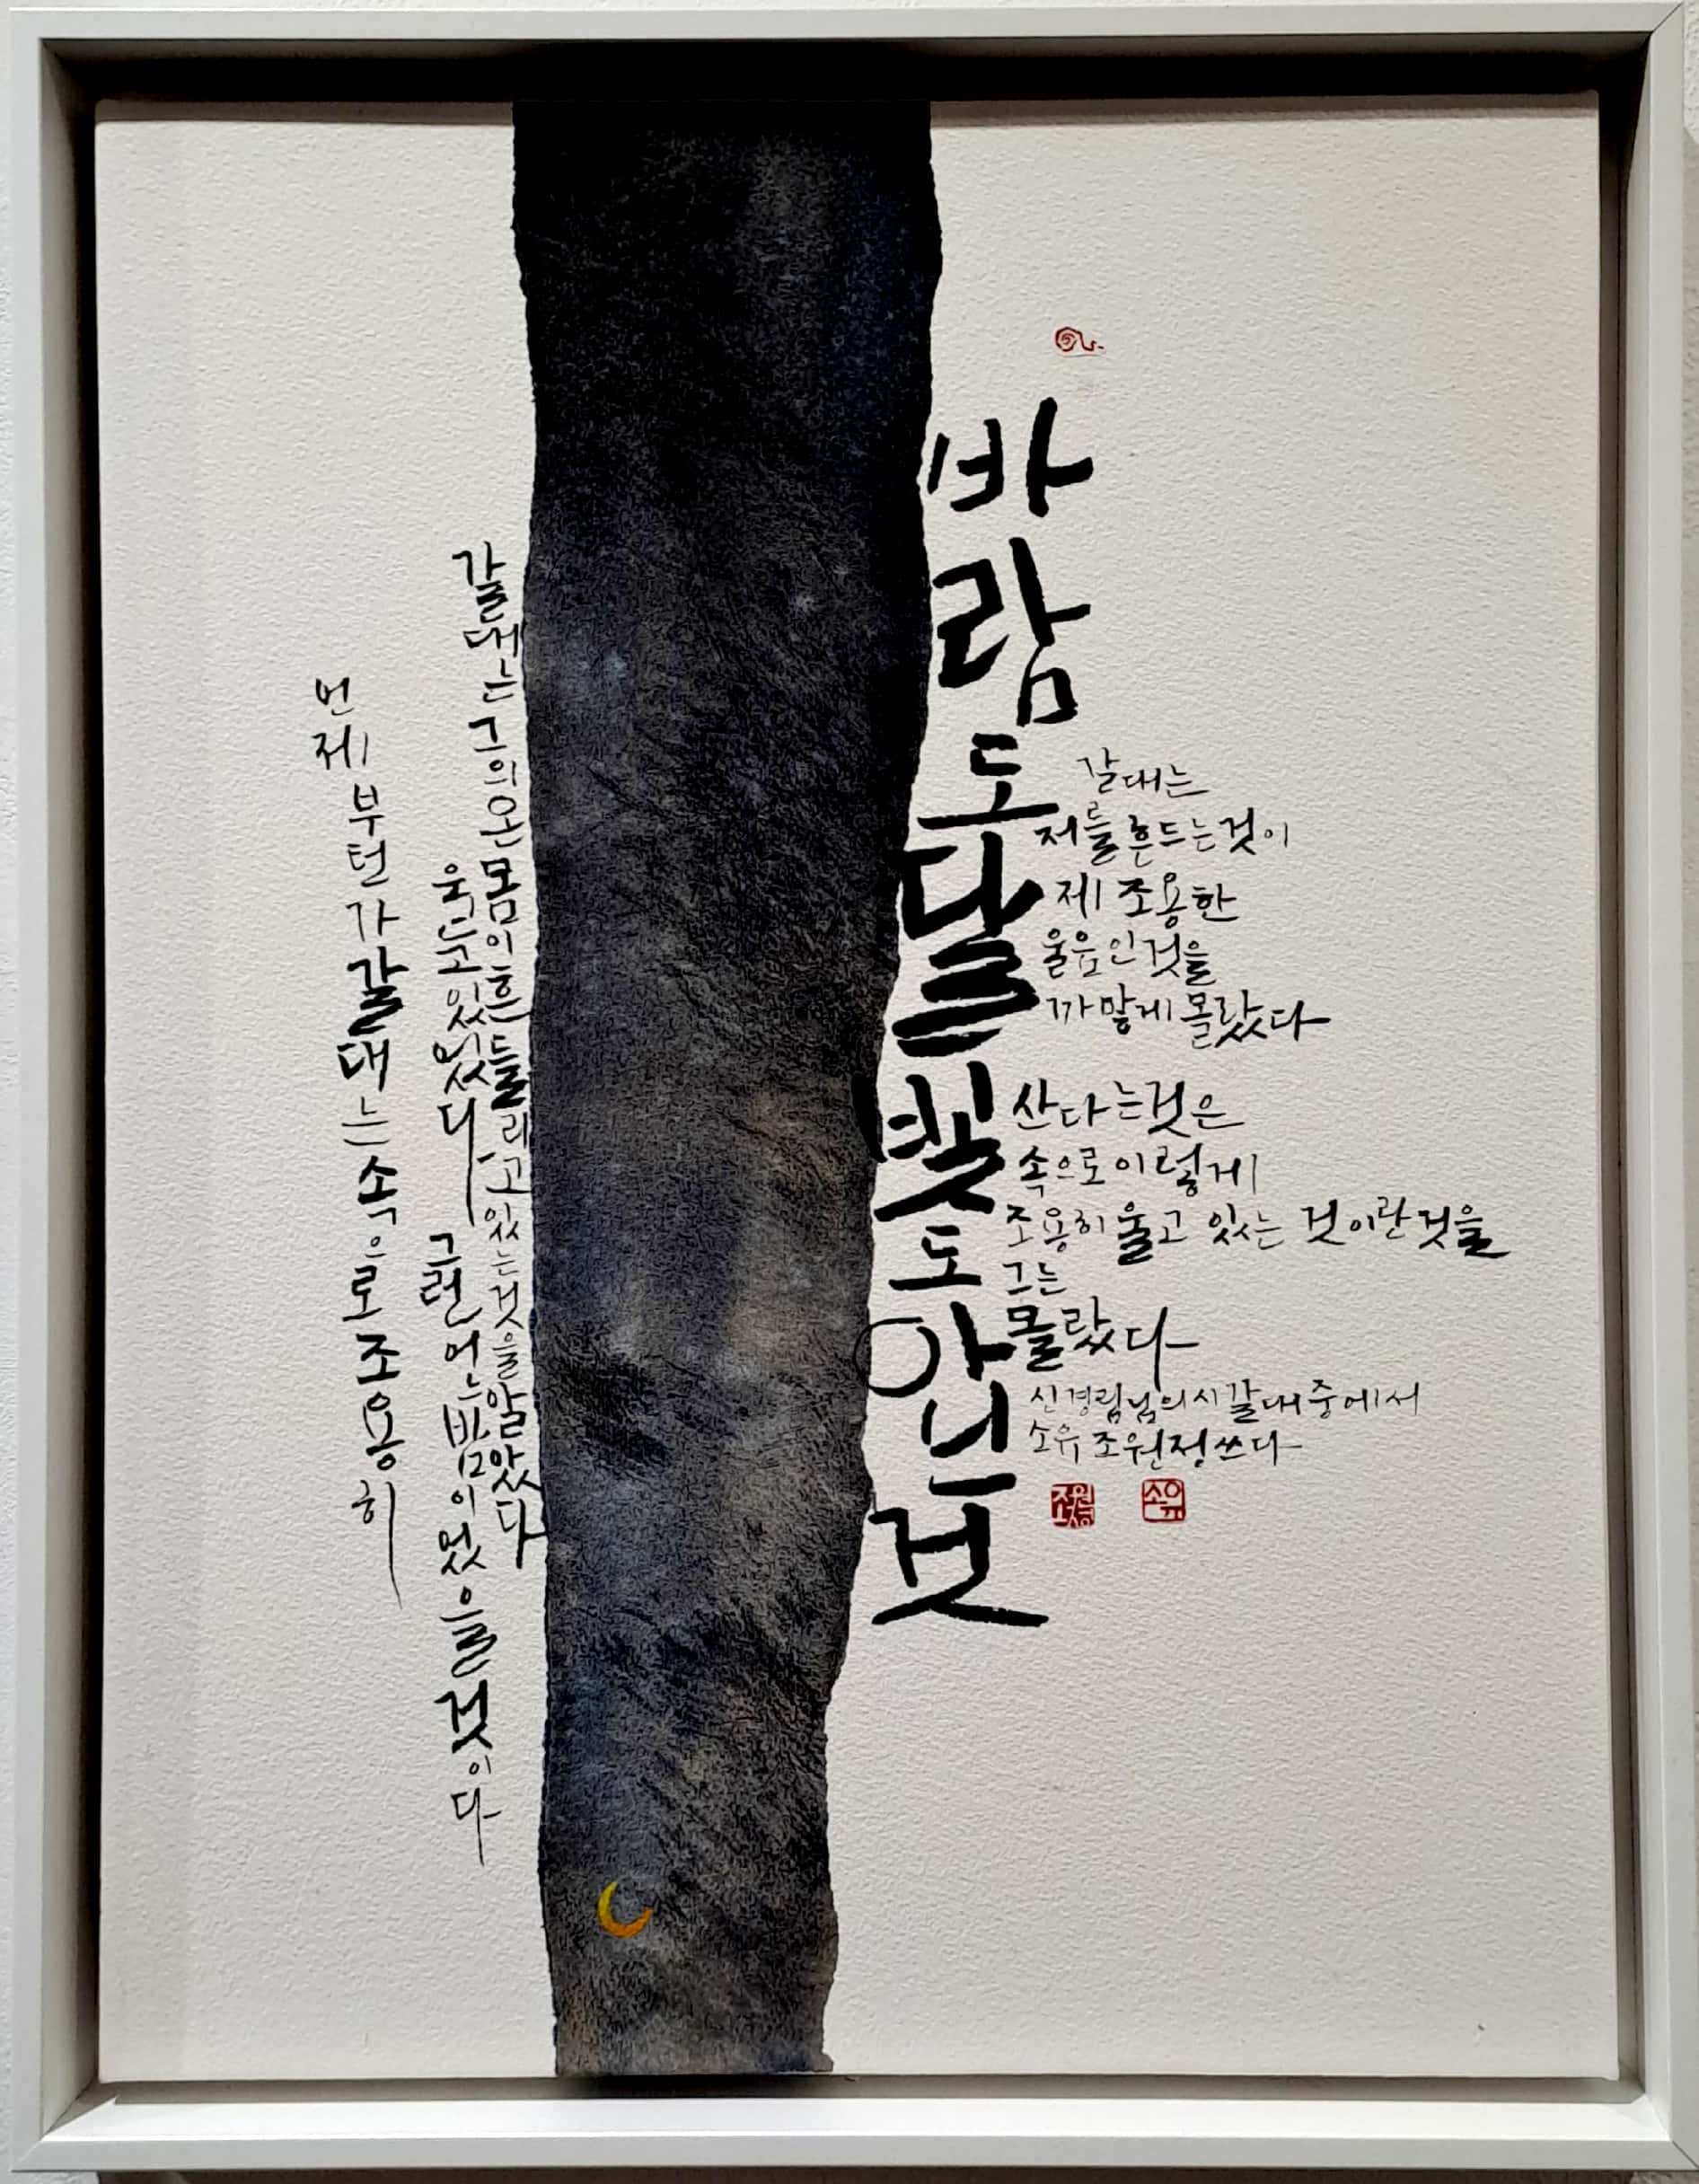 언제부턴가 갈대는 속으로 조용히
울고 있었다 그런 어느 밤이었을 것이다
갈대는 그의 온몸이 흔들리고 있는 것을 알았다
바람도 달빛도 아닌 것
갈대는
저를 흔드는 것이
제 조용한
울음인 것을
까맣게 몰랐다
산다는 것은
속으로 이렇게
조용히 울고 있는 것이란 것을
그는
몰랐다
신경림님의 시 갈대 중에서
소유 조원정 쓰다
조원정
소유